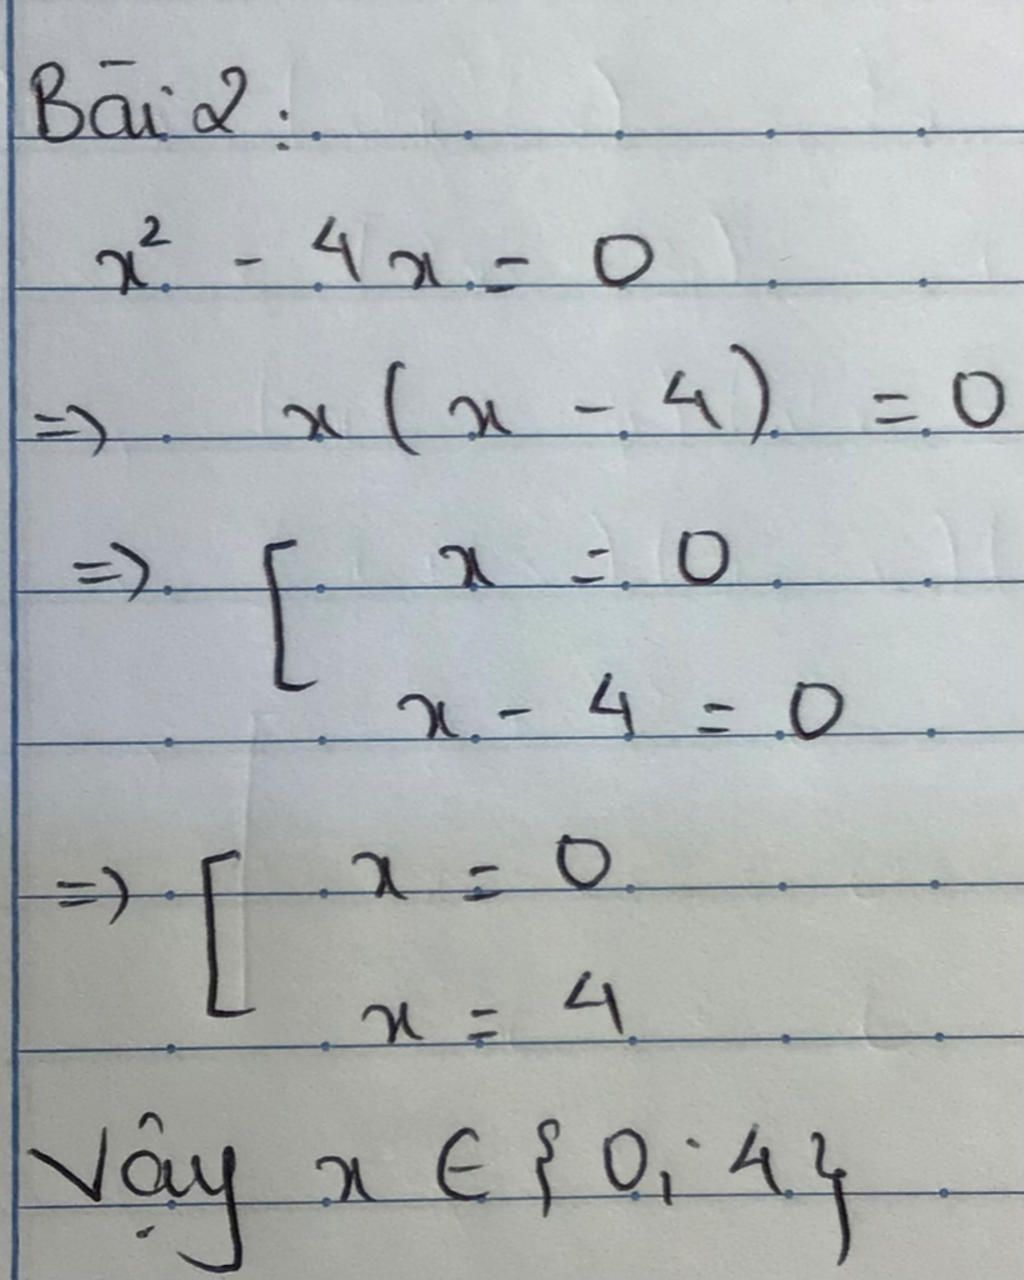 Bài 2:
x² - 4x = 0
=> x(x - 4) = 0
=> [ x = 0
x - 4 = 0
=> [ x = 0
x = 4
Vậy x ∈ {0; 4}